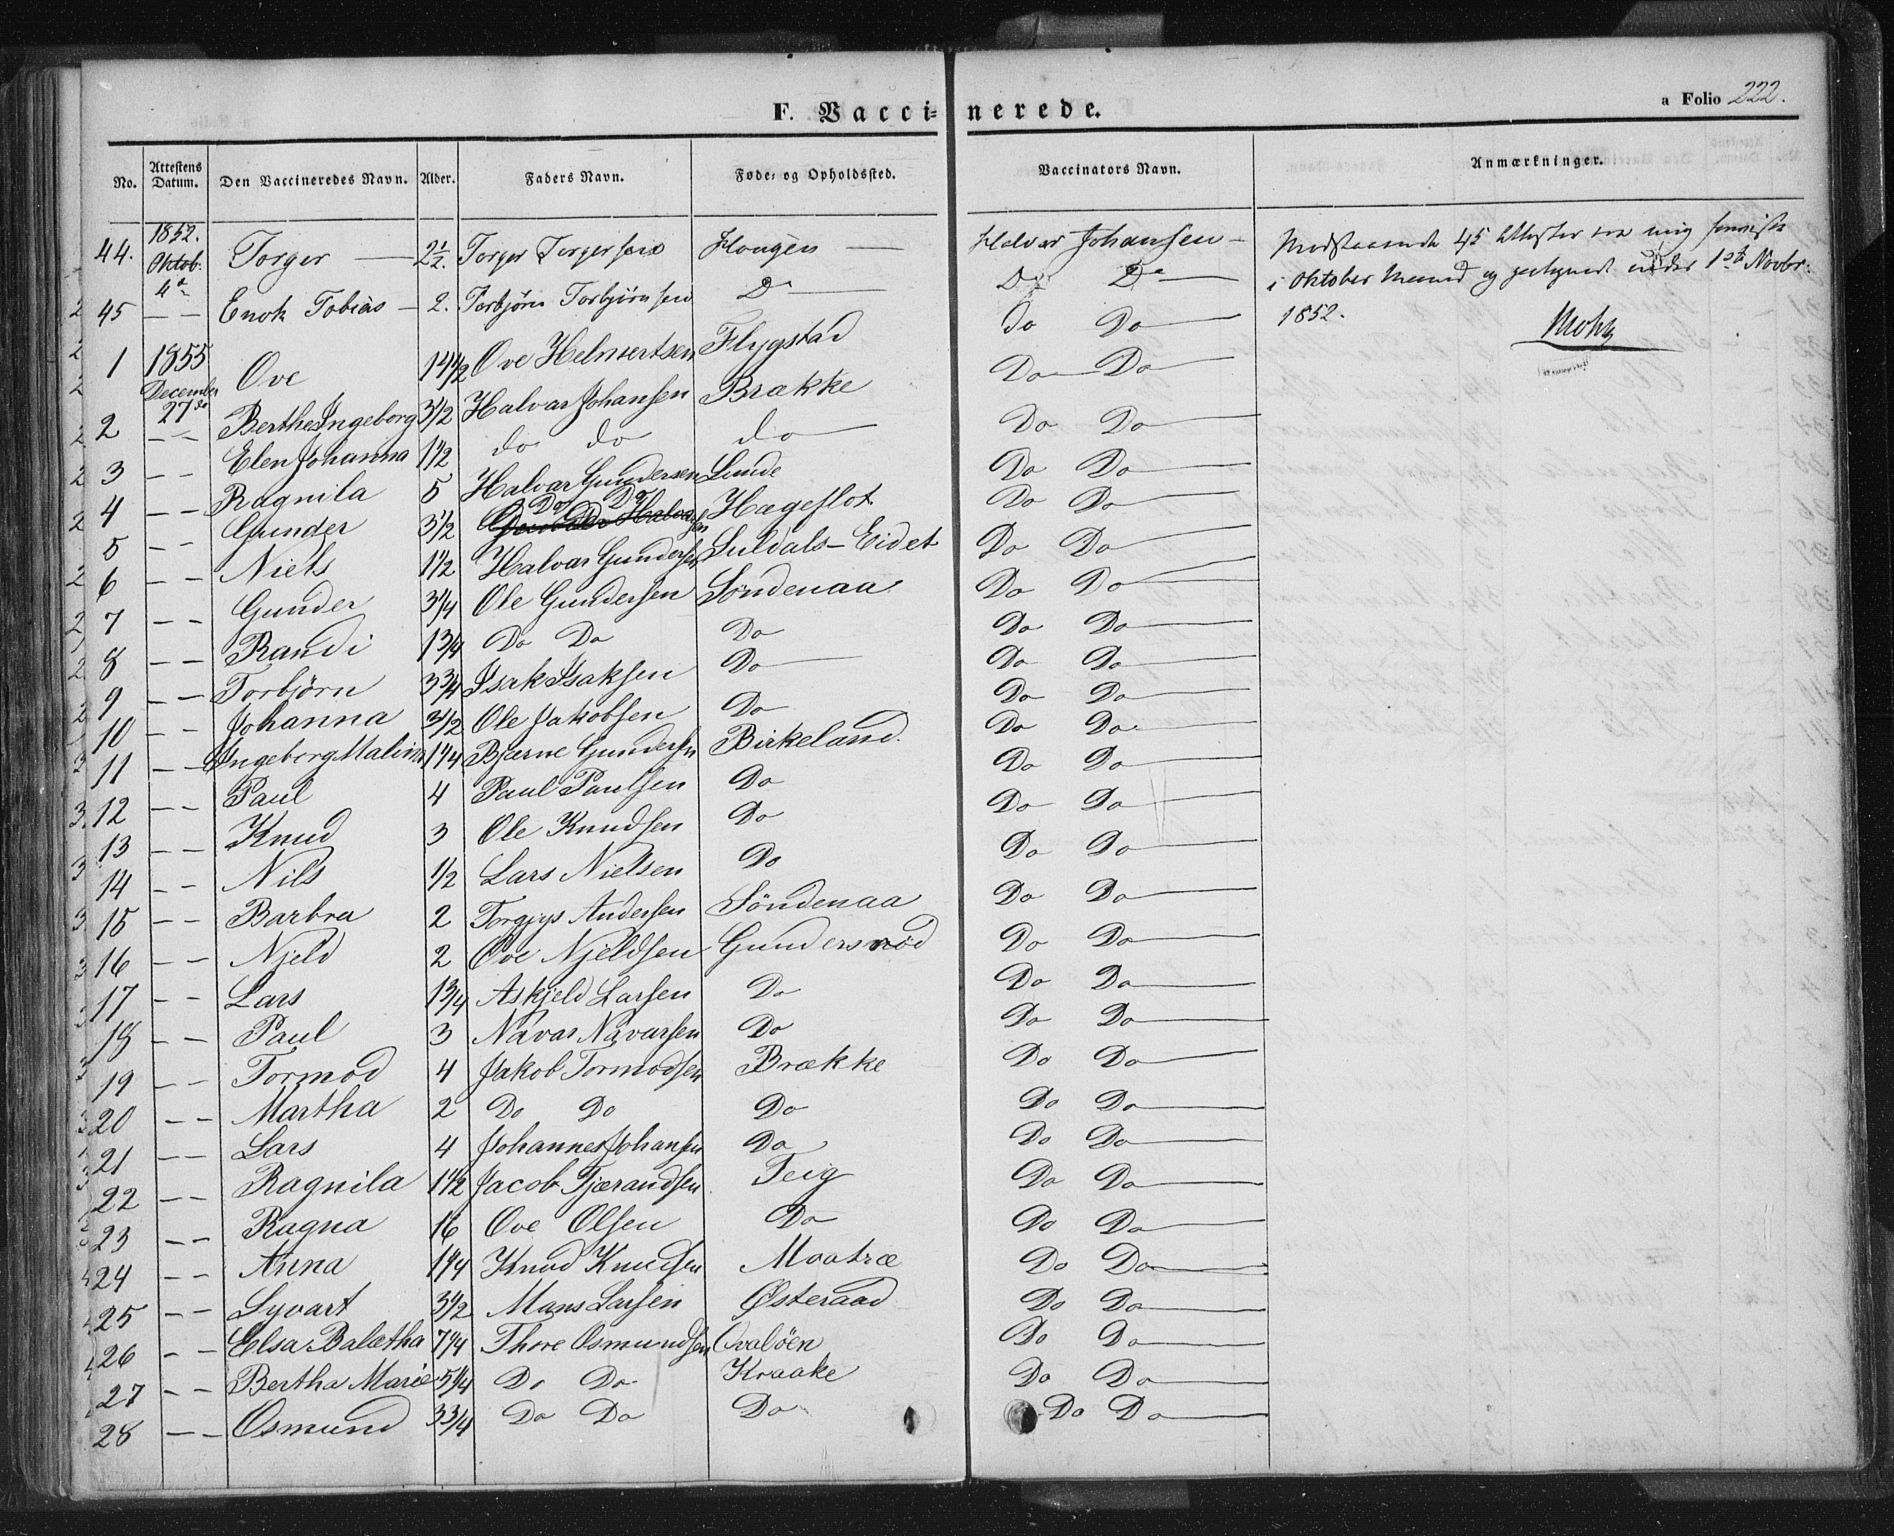 F. Vaccinerede.
a Folio 222.
No. Attestens Datum. Den Vaccineredes Navn. Alder. Faders Navn. Føde- og Opholdssted. Vaccinators Navn. Anmærkninger.
44. 1852. Oktob. 4de Torger — 2½. Torger Torgersen Hougen — Halvar Johansen —
45 — — Enok Tobias — 2. Torbjørn Torbjørnsen Do — Do Do —
45 Attester
i Oktober Maaned og under 1ste Novbr.
1852.
Do Do
1 1855 December 27de Ove 14½ Ove Helmertsen Flygstad Do Do
2 — — Berthe Ingeborg 3½ Halvar Johansen Brakke Do Do
3 — — Elen Johanna 1½ do do do Do Do
4 — — Ragnila 5 Halvar Gundersen Lunde Do Do
5 — — Gunder 3½ Do Do Hageflot Do Do
6 — — Niels 1½ Halvar Gundersen Suldals-Eidet Do Do
7 — — Gunder 3¼ Ole Gundersen Söndenaa Do Do
8 — — Randi 1¾ Do Do Do Do Do
9 — — Torbjörn 3¾ Isak Isaksen Do Do Do
10 — — Johanna 3½ Ole Jakobsen Do Do Do
11 — — Ingeborg Malina 1¼ Bjarne Gundersen Birkeland Do Do
12 — — Paul 4 Paul Paulsen Do Do Do
13 — — Knud 3 Ole Knudsen Do Do Do
14 — — Nils ½ Lars Nielsen Do Do Do
15 — — Barbra 2 Torgjys Andersen Söndenaa Do Do
16 — — Njeld 2 Ove Njeldsen Gundersnöd Do Do
17 — — Lars 1¾ Askjeld Larsen Do Do Do
18 — — Paul 3 Navar Navarsen Do Do Do
19 — — Tormod 4 Jakob Tormodsen Brække Do Do
20 — — Martha 2 Do Do Do Do Do
21 — — Lars 4 Johannes Johansen Do Do Do
22 — — Ragnila 1½ Jacob Tjærandsen Teig Do Do
23 — — Ragna 16 Ove Olsen Do Do Do
24 — — Anna 1¼ Knud Knudsen Moatræ Do Do
25 — — Syvart 3½ Mans Larsen Østeraad Do Do
26 — — Elsa Baletha 7¼ Thore Osmundsen Qvalöen Do Do
27 — — Bertha Marie 5¼ Do Do Kraake Do Do
28 — — Osmund 3¾ Do Do Do Do Do